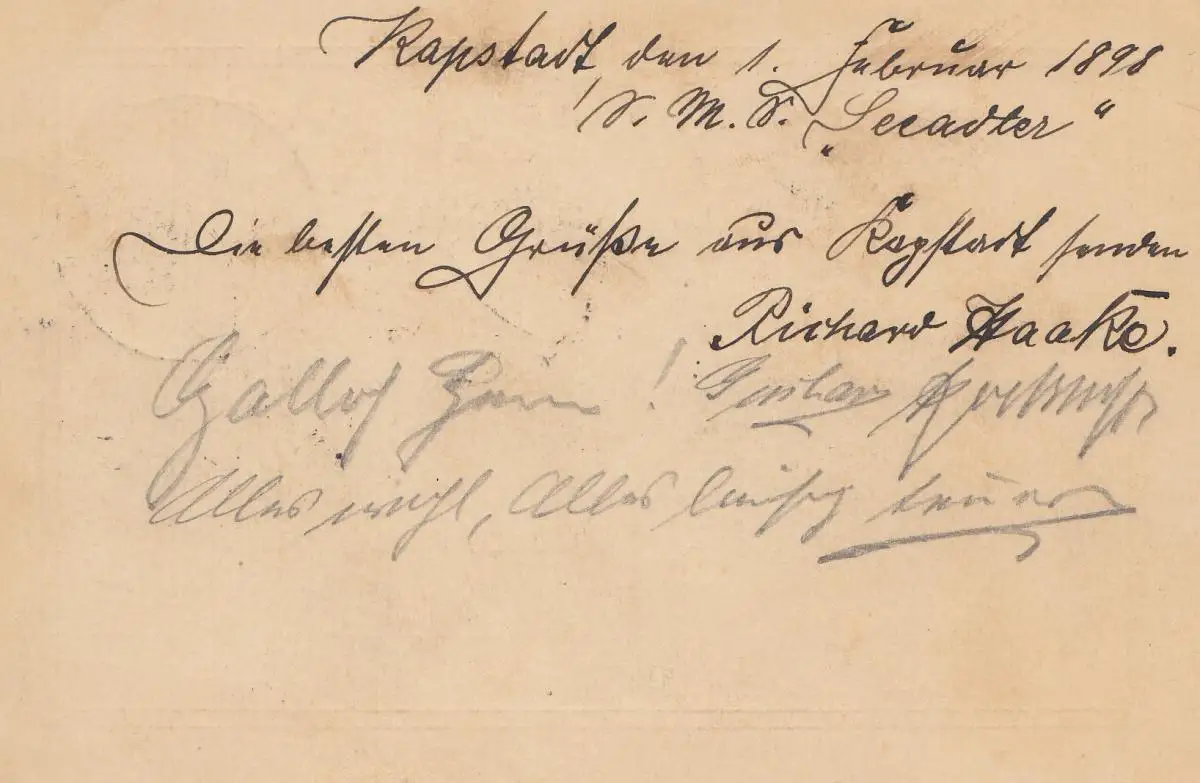 Kapstadt, den 1. Februar 1898
S. M. S. „Seeadler“
Die besten Grüße aus Kapstadt senden
Richard Haake.
! Gustav
Alles wohl, Alles teuer